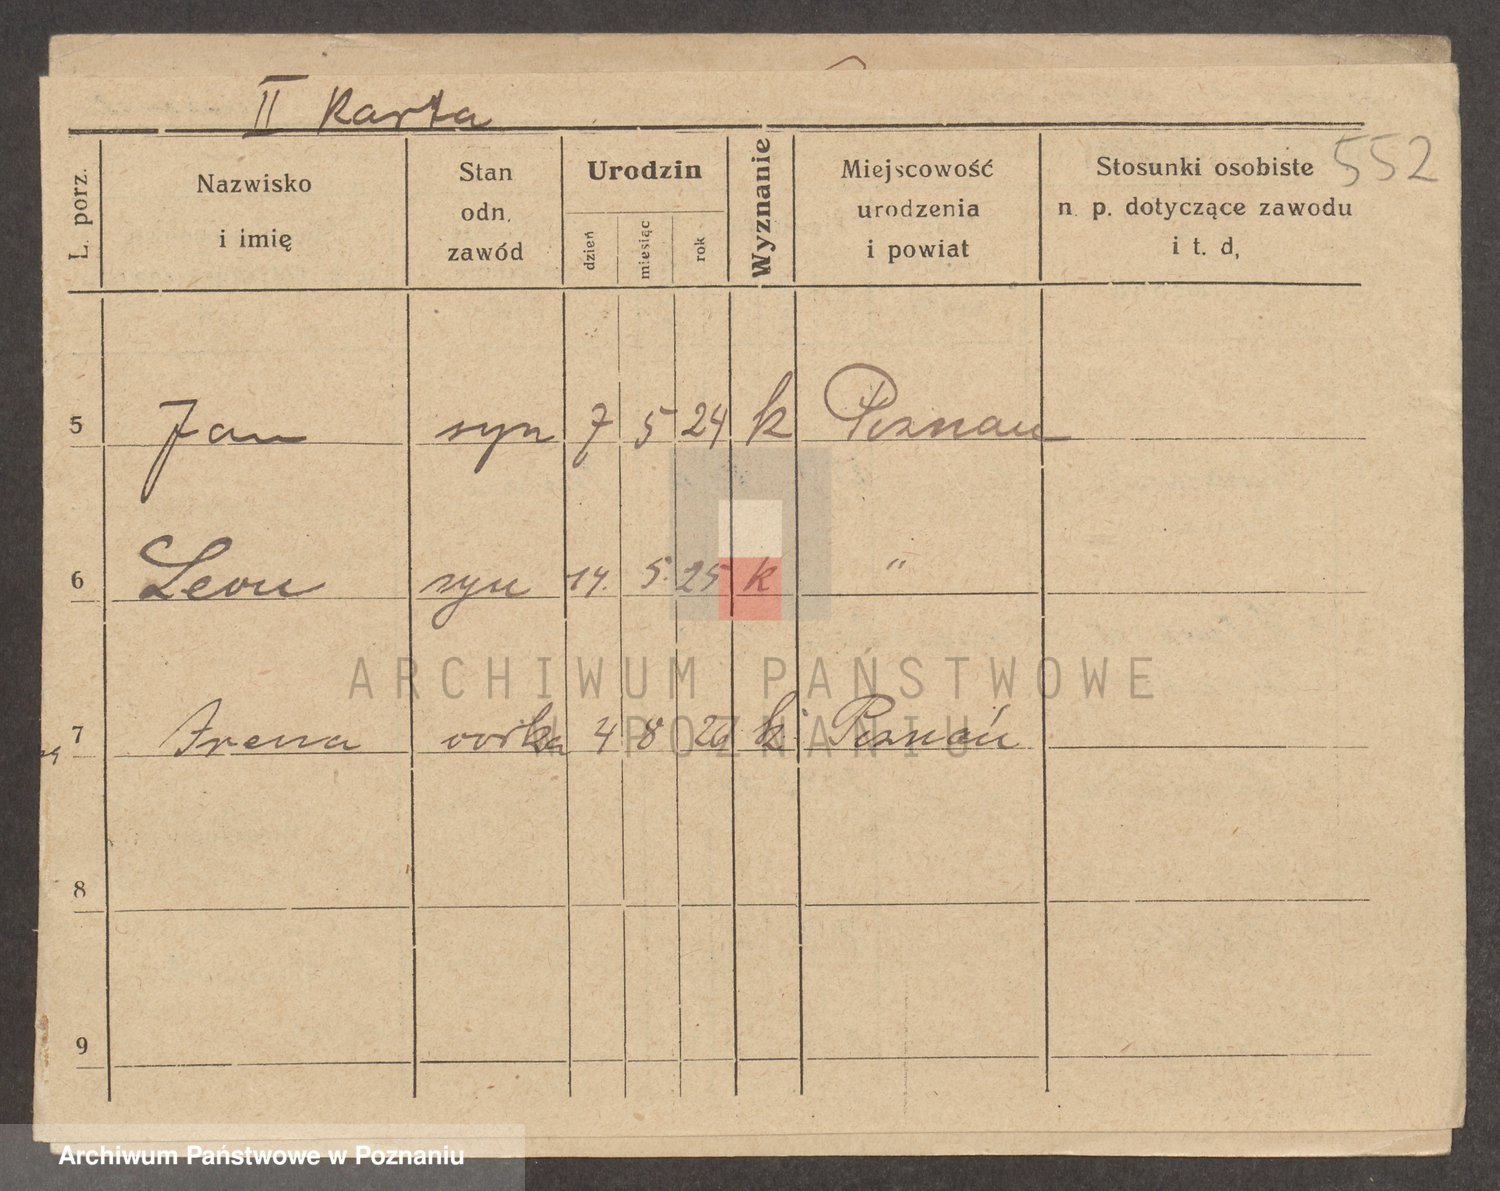 II Karta
552
L. porz.
Nazwisko
i imię
Stan
odn.
zawód
Urodzin
dzień
miesiąc
rok
Wyznanie
Miejscowość
urodzenia
i powiat
Stosunki osobiste
n. p. dotyczące zawodu
i t. d,
5 Jan syn 7 5 24 k Poznan
6 Leon syn 14. 5. 25 k "
7 Irena 4 8 k Poznań
8
9
ARCHIWUM PAŃSTWOWE
W POZNANIU
Archiwum Państwowe w Poznaniu